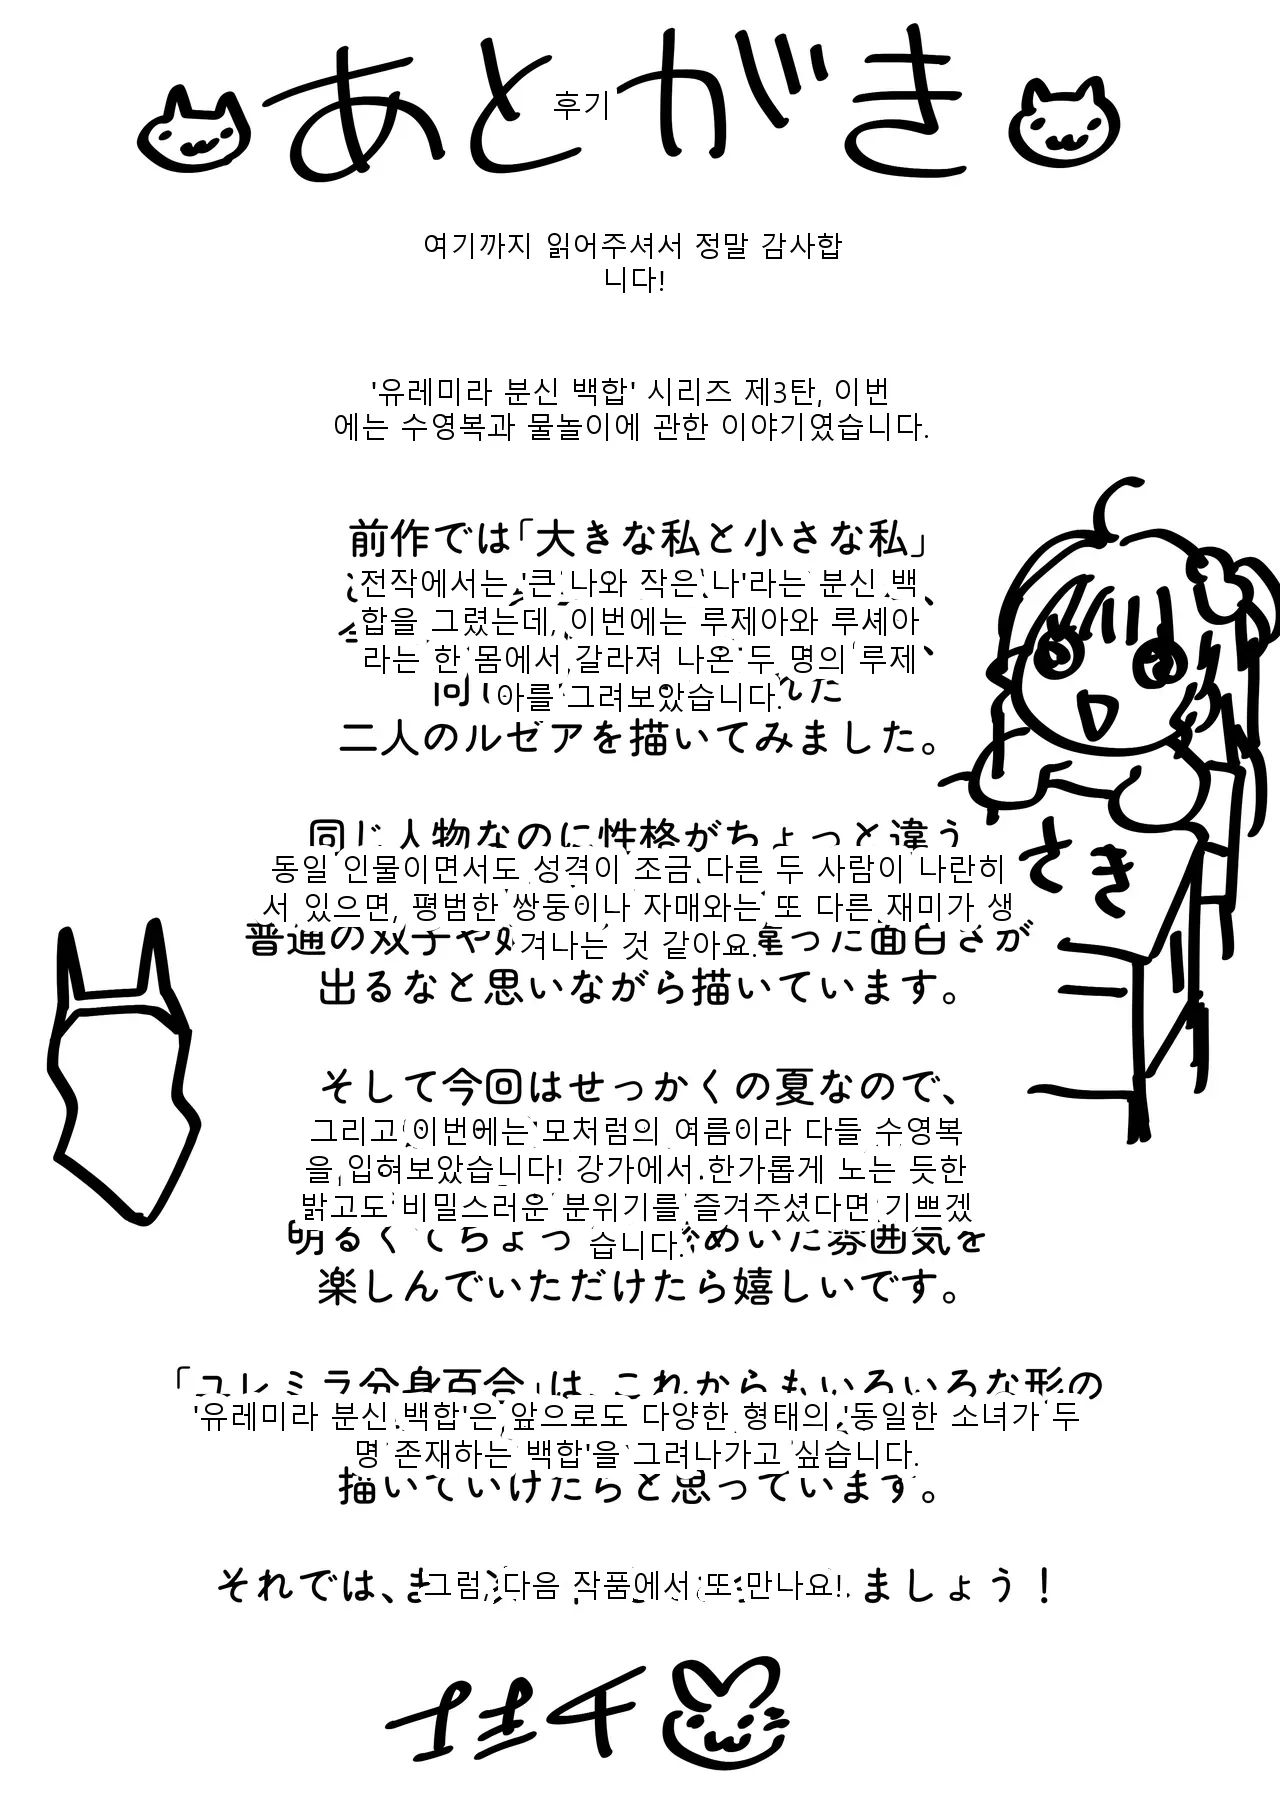 あとがき
후기
여기까지 읽어주셔서 정말 감사합
니다!
'유레미라 분신 백합' 시리즈 제3탄, 이번
에는 수영복과 물놀이에 관한 이야기였습니다.
前作では「大きな私と小さな私」
전작에서는 '큰 나와 작은 나'라는 분신 백
합을 그렸는데, 이번에는 루제아와 루셰아
라는 한 몸에서 갈라져 나온 두 명의 루제
아를 그려보았습니다.
二人のルゼアを描いてみました。
同じ人物なのに性格がちょっと違う
동일 인물이면서도 성격이 조금 다른 두 사람이 나란히
서 있으면, 평범한 쌍둥이나 자매와는 또 다른 재미가 생
겨나는 것 같아요.
普通の双子や
面白さが
出るなと思いながら描いています。
さき
そして今回はせっかくの夏なので、
그리고 이번에는 모처럼의 여름이라 다들 수영복
을 입혀보았습니다! 강가에서 한가롭게 노는 듯한
밝고도 비밀스러운 분위기를 즐겨주셨다면 기쁘겠
습니다.
明るくてちょっ
めいた雰囲気を
楽しんでいただけたら嬉しいです。
「ユレミラ分身百合」は、これからもいろいろな形の
'유레미라 분신 백합'은 앞으로도 다양한 형태의 '동일한 소녀가 두
명 존재하는 백합'을 그려나가고 싶습니다.
描いていけたらと思っています。
それでは、
그럼, 다음 작품에서 또 만나요!
ましょう！